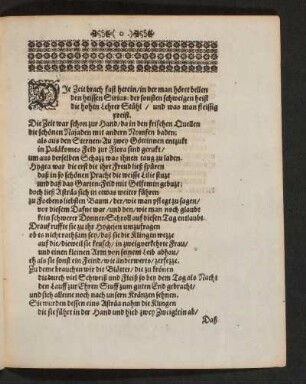 Die Zeit brach fast herein / in der man höret bellen
den heissen Sirius: der sonsten schweigen heist
die hohen Lehrer Stühl / und was man fleissig
preist.
Die Zeit war schon zur Hand / da in den frischen Quellen
die schönen Najaden mit andern Nymfen baden:
als aus den Sternen-Au zwey Göttinnen entzükt
in Palæmons Feld zur Flora sind gerukt /
um aus derselben Schatz was ihnen taug zu laden.
Hygea war die erst die ihre Freud ließ spüren
daß in so schönen Pracht die weisse Lilie stutzt
und daß das Garten-Feld mit Gesämen geputzt:
doch ließ Astræa sich in etwas weiter führen
zu Foebens liebsten Baum / der / wie man pflegt zu sagen /
vor diesem Dafne war / und den / wie man noch glaubt
kein schwerer Donner-Schroll auf diesen Tag entlaubt.
Drauf ruffte sie zu ihr Hygeien um zufragen
ob es nicht rahtsam sey / daß sie die Klingen wetze
auf die / dieweil sie keusch / in zweig verkehrte Frau /
und einen kleinen Arm von ihrem Leib abhau /
eh als sie sonst ein Feind / wie anderwerts / zerfetze.
Zu deme brauchen wir die Blätter / die zu krönen
die durch viel Schweiß und Fleiß so bey dem Tag als Nacht
den Lauff zur Ehren Stuff zum guten End gebracht /
und sich alleine noch nach unsern Kräntzen sehnen.
Sie wurden dessen eins Asträa nahm die Klingen
die sie führt in der Hand und hieb zwey Zweiglein ab /
Daß